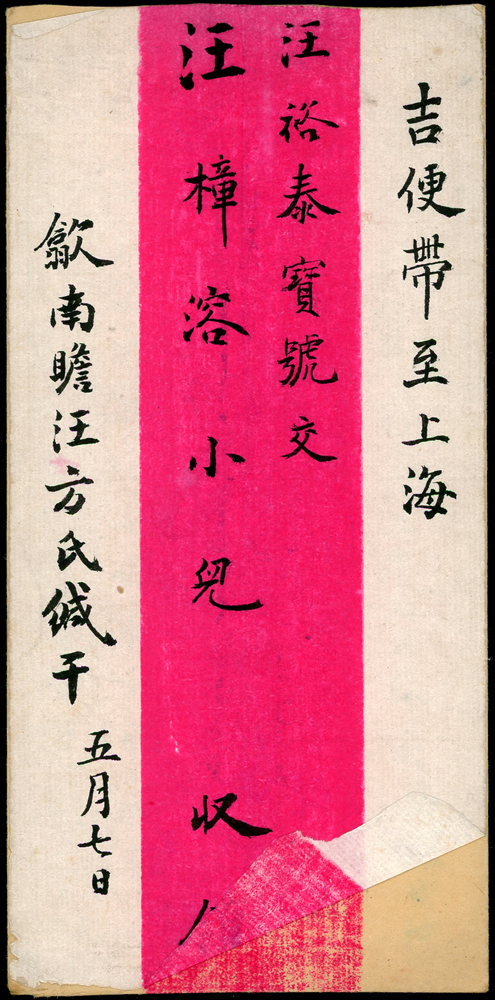 吉便帶至上海
汪裕泰寶號交
汪樟溶小兒 收
歙南瞻汪方氏緘干
五月七日